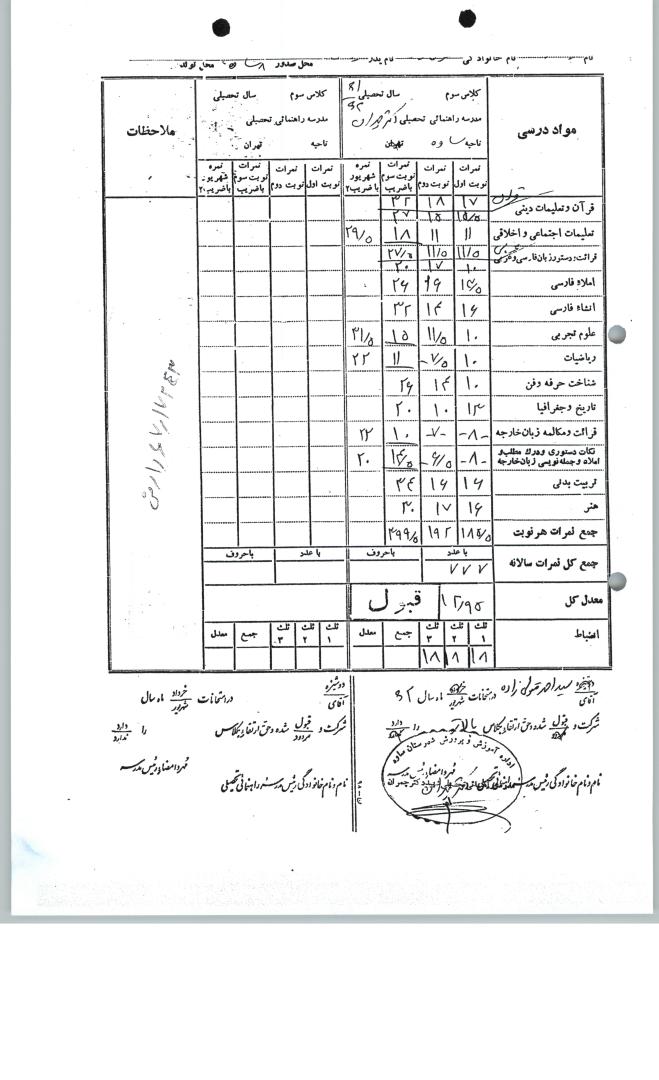 نام نام خانوادگی نام پدر محل صدور محل تولد
مواد درسی
کلاس سوم سال تحصیلی
مدرسه راهنمائی تحصیلی دکتر چمران
ناحیه ساوه تهران
کلاس سوم سال تحصیلی
مدرسه راهنمائی تحصیلی
ناحیه تهران
ملاحظات
نمرات نوبت اول نمرات نوبت دوم نمرات نوبت سوم باضریب نمره شهریور باضریب ۲
نمرات نوبت اول نمرات نوبت دوم نمرات نوبت سوم باضریب نمره شهریور باضریب ۲
قرآن و تعلیمات دینی ۱۷ ۱۸ ۳۲
۱۵/۵ ۱۵ ۲۷
تعلیمات اجتماعی و اخلاقی ۱۱ ۱۱ ۱۸ ۲۹/۵
قرائت و دستور زبان فارسی ۱۱/۵ ۱۱/۵ ۲۷/۵
۱۰ ۱۷ ۲۰
املاء فارسی ۲۶
انشاء فارسی ۱۶ ۱۴ ۳۲
علوم تجربی ۱۰ ۱۱/۵ ۱۵ ۳۱/۵
ریاضیات ۱۰ -۷/۵ ۱۱ ۲۲
شناخت حرفه و فن ۱۰ ۱۴ ۲۶
تاریخ و جغرافیا ۱۳ ۱۰ ۲۰
قرائت و مکالمه زبان خارجه -۸- -۷- ۱۰ ۲۲
نکات دستوری و درک مطلب و املاء و جمله نویسی زبان خارجه -۸- -۶/۵ ۱۴/۵ ۲۰
تربیت بدنی ۱۶ ۱۶ ۳۴
هنر ۱۶ ۱۷ ۳۰
جمع نمرات هر نوبت ۱۸۵/۵ ۱۹۲ ۳۹۹/۵
جمع کل نمرات سالانه با عدد باحروف با عدد باحروف
۷۷۷
معدل کل ۱۲/۹۵ قبول
انضباط ثلث ۱ ثلث ۲ ثلث ۳ جمع معدل ثلث ۱ ثلث ۲ ثلث ۳ جمع معدل
۱۸ ۱۸ ۱۸
دوشیزه آقای سید احمد قبولی زاده در امتحانات خرداد شهریور ماه سال ۶۲
شرکت و قبول شده و حق ارتقاء بکلاس بالاتر را دارد
مهر و امضاء رئیس مدرسه
نام و نام خانوادگی رئیس مدرسه راهنمائی تحصیلی
اداره آموزش و پرورش شهرستان ساوه
دوشیزه آقای در امتحانات خرداد شهریور ماه سال
شرکت و قبول مردود شده و حق ارتقاء بکلاس را دارد ندارد
مهر و امضاء رئیس مدرسه
نام و نام خانوادگی رئیس مدرسه راهنمائی تحصیلی